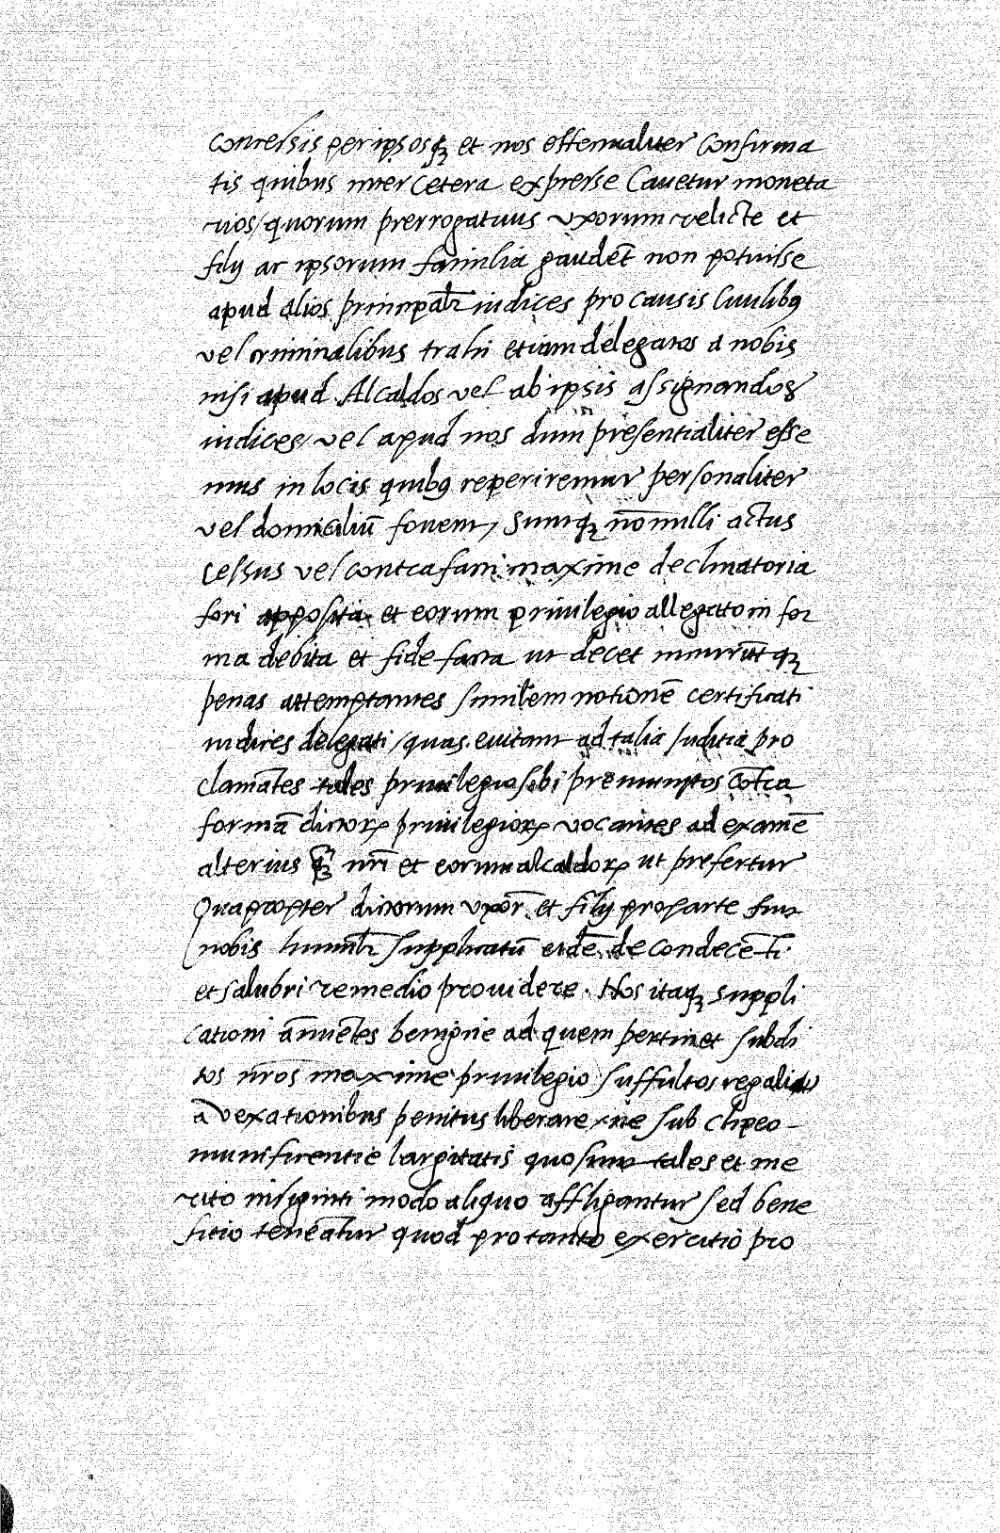 concessis per ipsosq3 et nos essentialiter confirma
tis quibus inter cetera expresse cauetur moneta
rios/ quorum prerrogatiuis vxorum relicte et
filij ac ipsorum familia gaudet̄ non potuisse
apud alios principalr̄ iudices pro causis ciuilib9
vel criminalibus trahi etiam delegatos a nobis
nisi apud Alcaldos vel ab ipsis assignandos
iudices/ vel apud nos dum presentialiter esse
mus in locis quib9 reperiremur personaliter
vel domiciliū fouent/ sumq3 nōnulli actus
cessus vel contrafacti maxime declinatoria
fori apposita et eorum priuilegio allegato in for
ma debita et fide facta ut decet incurrūt q3
penas attemptantes similem notionē certificati
iudices delegati/ quas euitant ad talia juditia pro
clamātes tales priuilegio sibi premunitos cōtra
formā dictorꝝ priuilegiorꝝ vocantes ad examē
alterius q3 nr̄i et eorum alcaldorꝝ ut prefertur
Quapropter dictorum vxor̄ et filij pro parte fuit
nobis humilr̄ supplicatū eisdē de condecēti
et salubri remedio prouidere. Nos itaq3 suppli
cationi ānuētes benigne ad quem pertinet subdi
tos nr̄os maxime priuilegio suffultos regali
a vexationibus penitus liberare/ ne sub clipeo
munificentie largitatis quo sunt tales et me
rito insigniti modo aliquo affligantur sed bene
fitio teneātur quod pro tanto exercitio pro